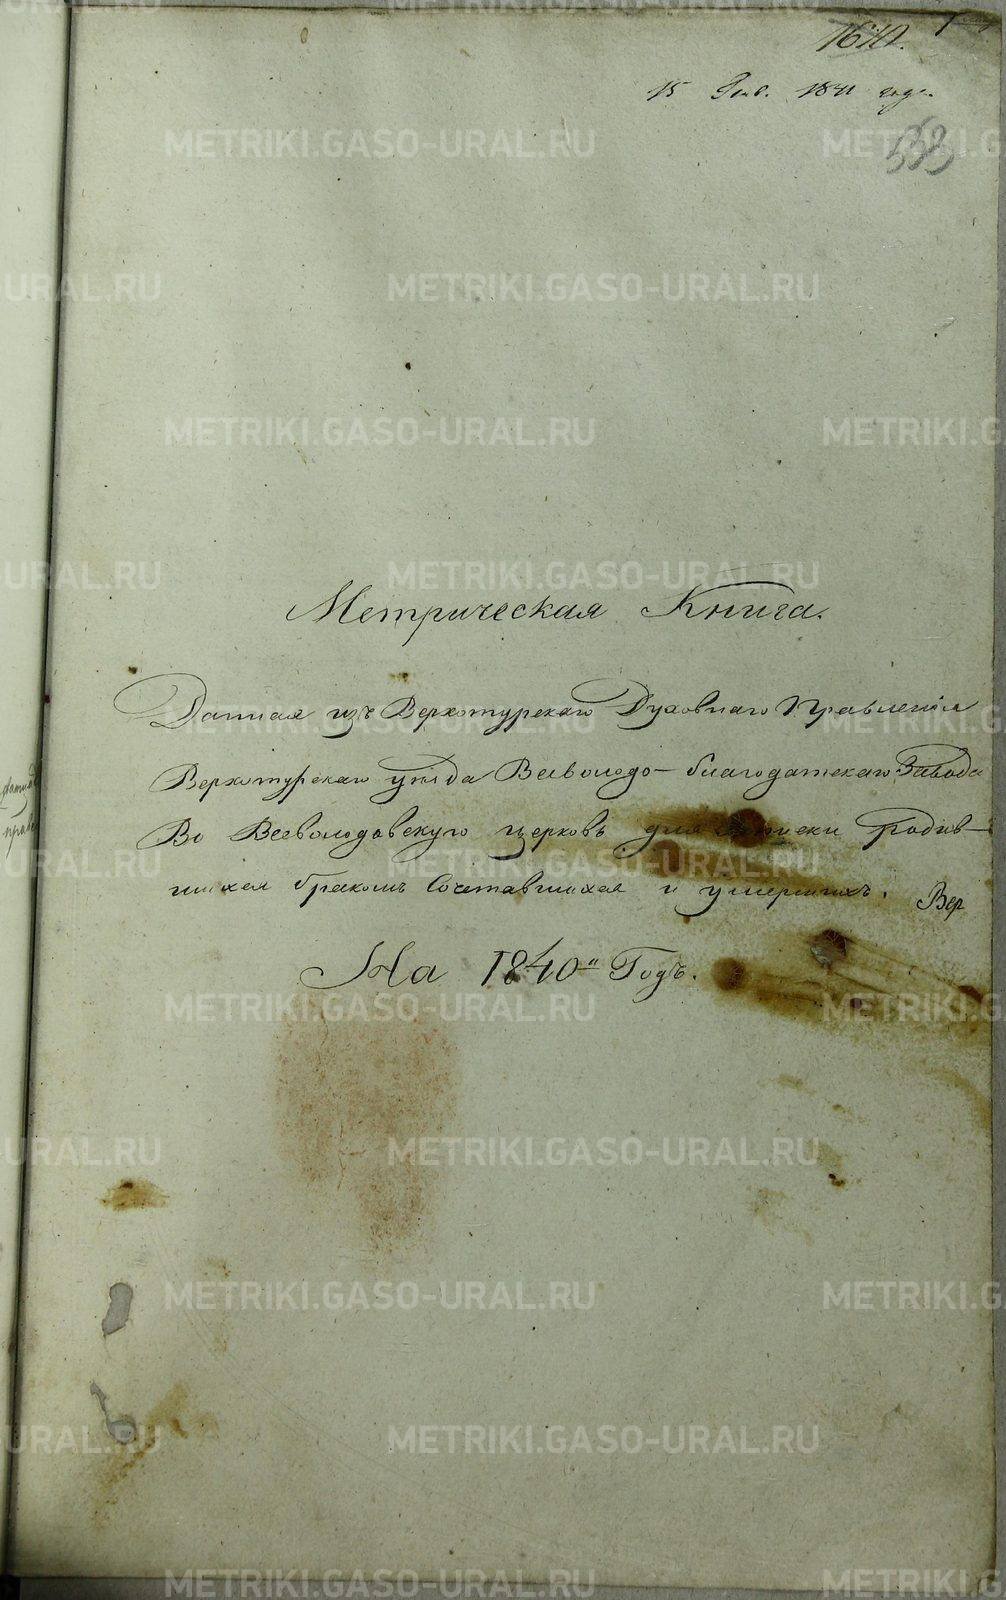 15 Янв. 1841 года.
Метрическая Книга.
Данная изъ Верхотурскаго Духовнаго Правленія
Верхотурскаго уѣзда Всеволодо-благодатскаго Завода
Во Всеволодовскую церковь для записки родив-
шихся бракомъ Сочетавшихся и умершихъ. Вер
На 1840й Годъ.
METRIKI.GASO-URAL.RU